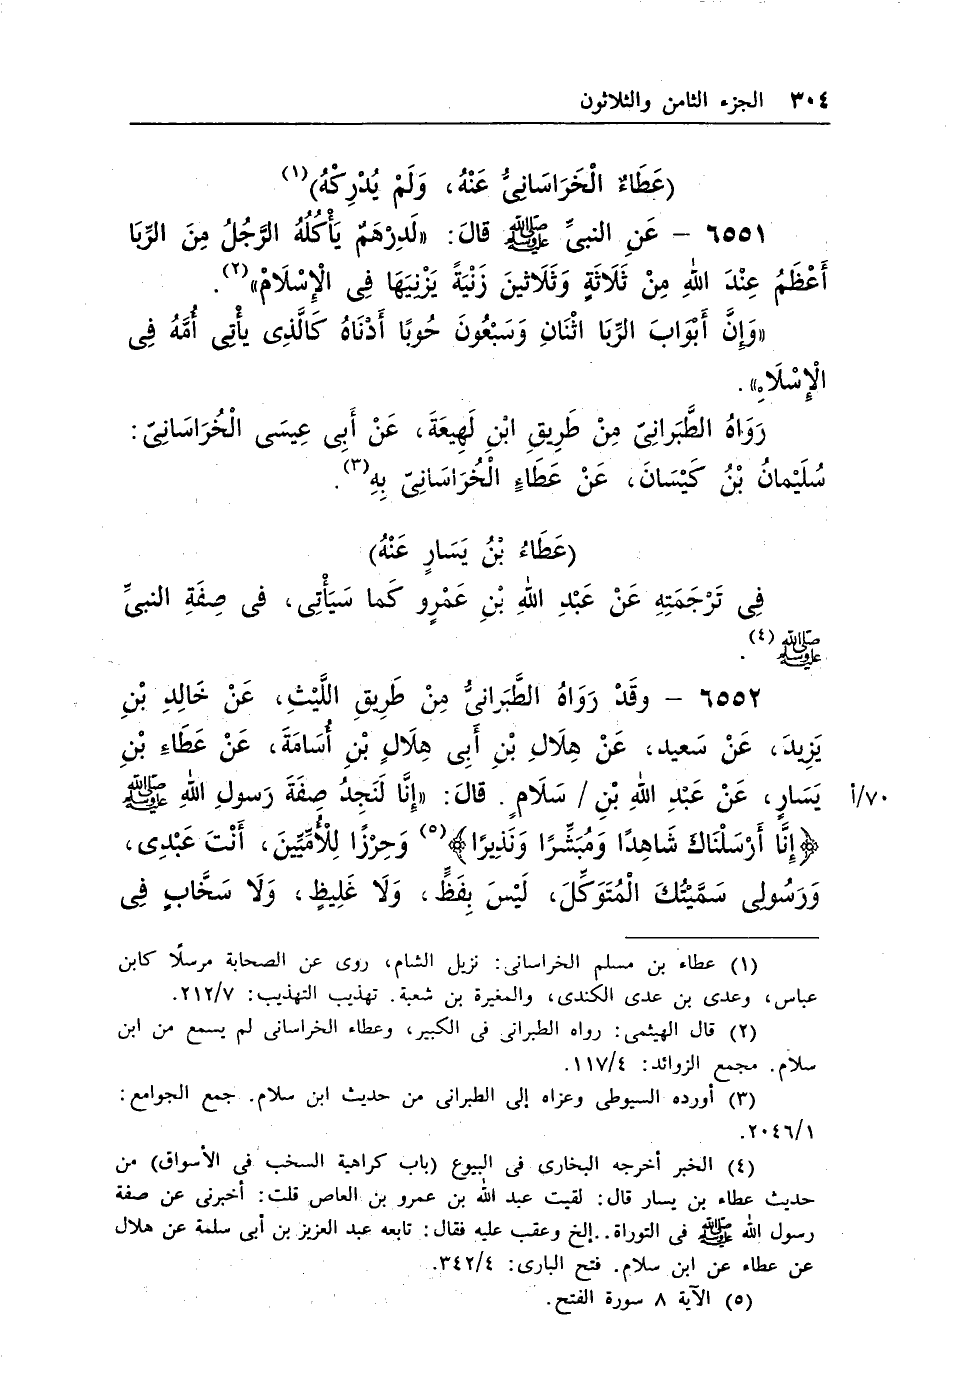 ٣٠٤ الجزء الثامن والثلاثون
(عَطَاءٌ الْخَرَاسَانِىُّ عَنْهُ، وَلَمْ يُدْرِكْهُ)(١)
٦٥٥١ – عَنِ النبىِّ ﷺ قالَ: «لَدِرْهَمٌ يَأْكُلُهُ الرَّجُلُ مِنَ الرِّبَا
أَعْظَمُ عِنْدَ اللهِ مِنْ ثَلَاثَةٍ وَثَلَاثينَ زَنْيَةً يَزْنِيَهَا فِى الْإِسْلَامْ»(٢).
«وَإِنَّ أَبْوَابَ الرِّبَا اثْنَانِ وَسَبْعُونَ حُوبًا أَدْنَاهُ كَالَّذِى يأْتِى أُمَّهُ فِى
الْإِسْلَامِ».
رَوَاهُ الطَّبَرانِىّ مِنْ طَرِيقِ ابْنِ لَهِيعَةَ، عَنْ أَبِى عِيسَى الْخُرَاسَانِىّ:
سُلَيْمانُ بْنُ كَيْسَانَ، عَنْ عَطَاءٍ الْخُرَاسَانِىّ بِهِ(٣).
(عَطَاءُ بْنُ يَسَارٍ عَنْهُ)
فِى تَرْجَمَتِهِ عَنْ عَبْدِ اللهِ بْنِ عَمْرٍو كَما سَيَأْتِى، فى صِفَةِ النبىِّ
ﷺ(٤).
٦٥٥٢ – وقَدْ رَوَاهُ الطَّبَرانىُّ مِنْ طَرِيقِ اللَّيْثِ، عَنْ خَالِدِ بْنِ
يَزِيدَ، عَنْ سَعيد، عَنْ هِلَالِ بْنِ أَبِى هِلَالٍ بْنِ أُسَامَةَ، عَنْ عَطَاءِ بْنِ
يَسَارٍ، عَنْ عَبْدِ اللهِ بْنِ / سَلَامٍ. قالَ: «إنَّا لَنَجِدُ صِفَةَ رَسولِ اللهِ ﷺ ٧٠/أ
﴿إِنَّا أَرْسَلْنَاكَ شَاهِدًا وَمُبَشِّرًا وَنَذِيرًا﴾(٥) وَحِرْزًا لِلْأُمِّيِّينَ، أَنْتَ عَبْدِى،
وَرَسُولِى سَمَّيْتُكَ الْمُتَوَكِّلَ، لَيْسَ بِفَظٍّ، وَلَا غَلِيظٍ، وَلَا سَخَّابٍ فِى
(١) عطاء بن مسلم الخراسانى: نزيل الشام، روى عن الصحابة مرسلًا كابن
عباس، وعدى بن عدى الكندى، والمغيرة بن شعبة. تهذيب التهذيب: ٢١٢/٧.
(٢) قال الهيثمى: رواه الطبرانى فى الكبير، وعطاء الخراسانى لم يسمع من ابن
سلام. مجمع الزوائد: ١١٧/٤.
(٣) أورده السيوطى وعزاه إلى الطبرانى من حديث ابن سلام. جمع الجوامع:
٢٠٤٦/١.
(٤) الخبر أخرجه البخارى فى البيوع (باب كراهية السخب فى الأسواق) من
حديث عطاء بن يسار قال: لقيت عبد الله بن عمرو بن العاص قلت: أخبرنى عن صفة
رسول الله ﷺ فى التوراة..إلخ وعقب عليه فقال: تابعه عبد العزيز بن أبى سلمة عن هلال
عن عطاء عن ابن سلام. فتح البارى: ٣٤٢/٤.
(٥) الآية ٨ سورة الفتح.